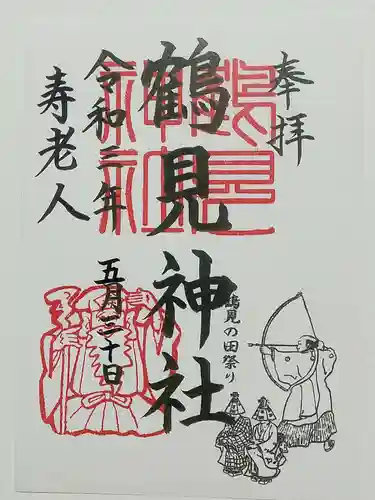 奉拝
鶴見神社
鶴見の田祭り
令和三年
五月三十日
寿老人
鶴見神社